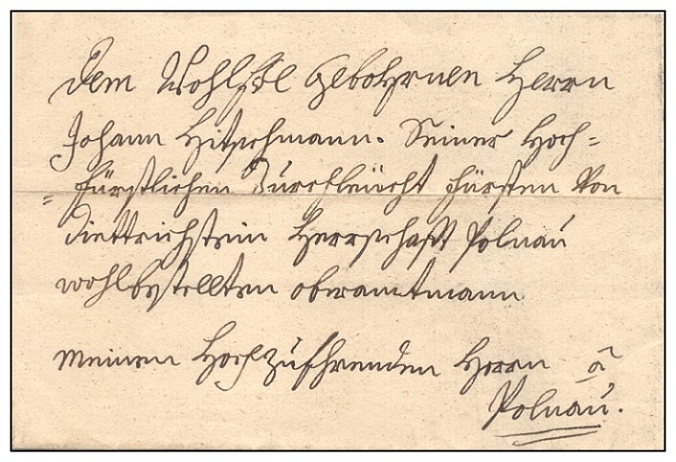 Dem Wohl Edl Gebohrnen Herrn
Johann Hitschmann. Seiner Hoch=
=fürstlichen Durchleücht fürsten Von
Diettrichstein Herrschafft Polnau
wohlbestellten oberamtmann
Meinen Hochzuehrenden Herrn a
Polnau.